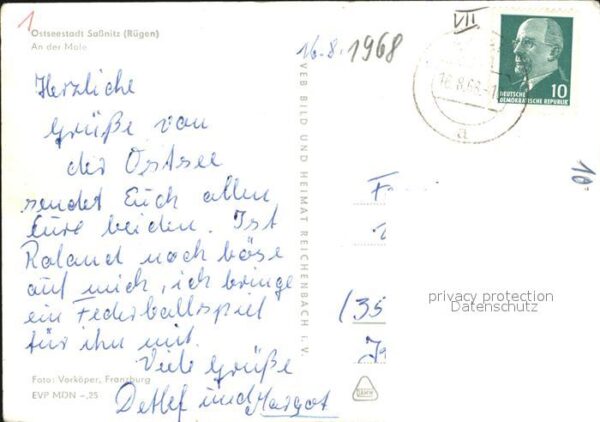 1
Ostseestadt Saßnitz (Rügen)
An der Mole
Herzliche
Grüße von
der Ostsee
sendet Euch allen
Eure beiden. Ist
Roland noch böse
auf mich, ich bringe
ein Federballspiel
für ihn mit.
Viele Grüße
Detlef und Margot
Foto: Vorköper, Franzburg
EVP MDN -,25
16.8.1968
VEB BILD UND HEIMAT REICHENBACH i. V.
VII
16.8.68
a
10
DEUTSCHE
DEMOKRATISCHE REPUBLIK
10
F
(35
privacy protection
Datenschutz